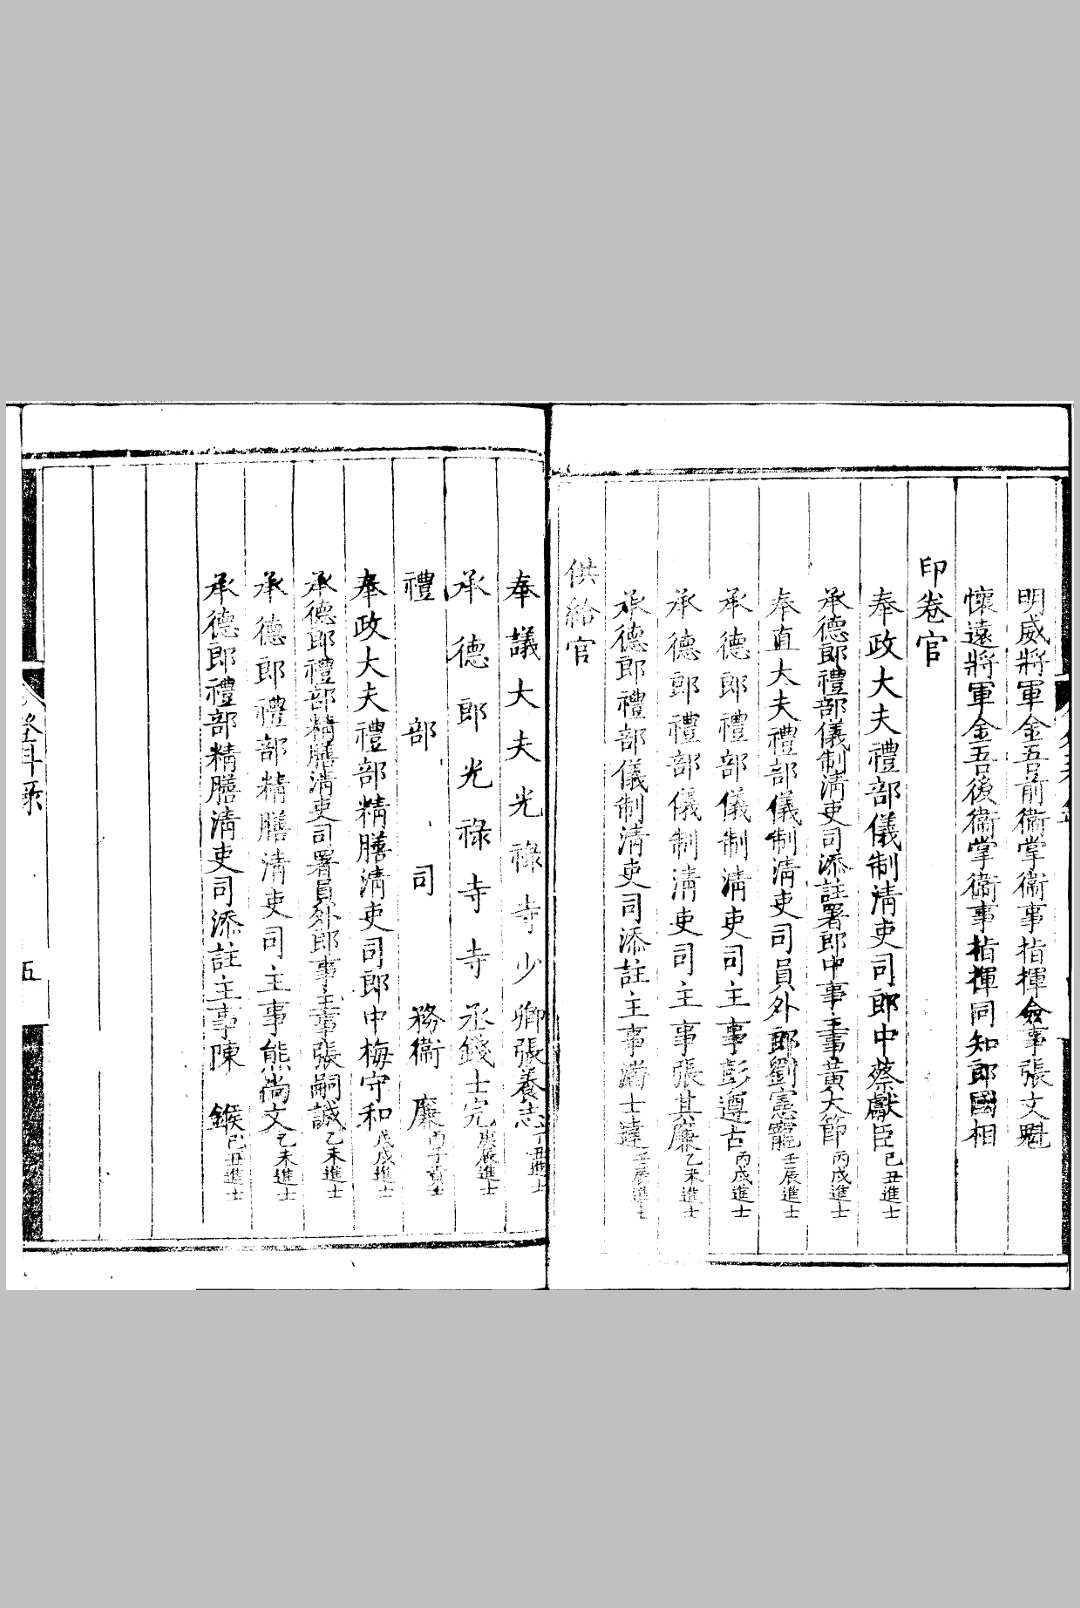 明威將軍金吾前衞掌衞事指揮僉事張文魁
懷遠將軍金吾後衞掌衞事指揮同知郎國相
印卷官
奉政大夫禮部儀制淸吏司郎中蔡獻臣己丑進士
承德郎禮部儀制淸吏司添註署郎中事主事黃大節丙戌進士
奉直大夫禮部儀制淸吏司員外郎劉憲寵壬辰進士
承德郎禮部儀制淸吏司主事彭遵古丙戌進士
承德郎禮部儀制淸吏司主事張其廉乙未進士
承德郎禮部儀制淸吏司添註主事潘士達壬辰進士
供給官
奉議大夫光祿寺少卿張養志丁丑進士
承德郎光祿寺寺丞錢士完庚辰進士
禮部司務衞廉丙子貢士
奉政大夫禮部精膳淸吏司郎中梅守和戊戌進士
承德郎禮部精膳淸吏司署員外郎事主事張嗣誠乙未進士
承德郎禮部精膳淸吏司主事熊尚文乙未進士
承德郎禮部精膳淸吏司添註主事陳鍭己丑進士
登科录
五